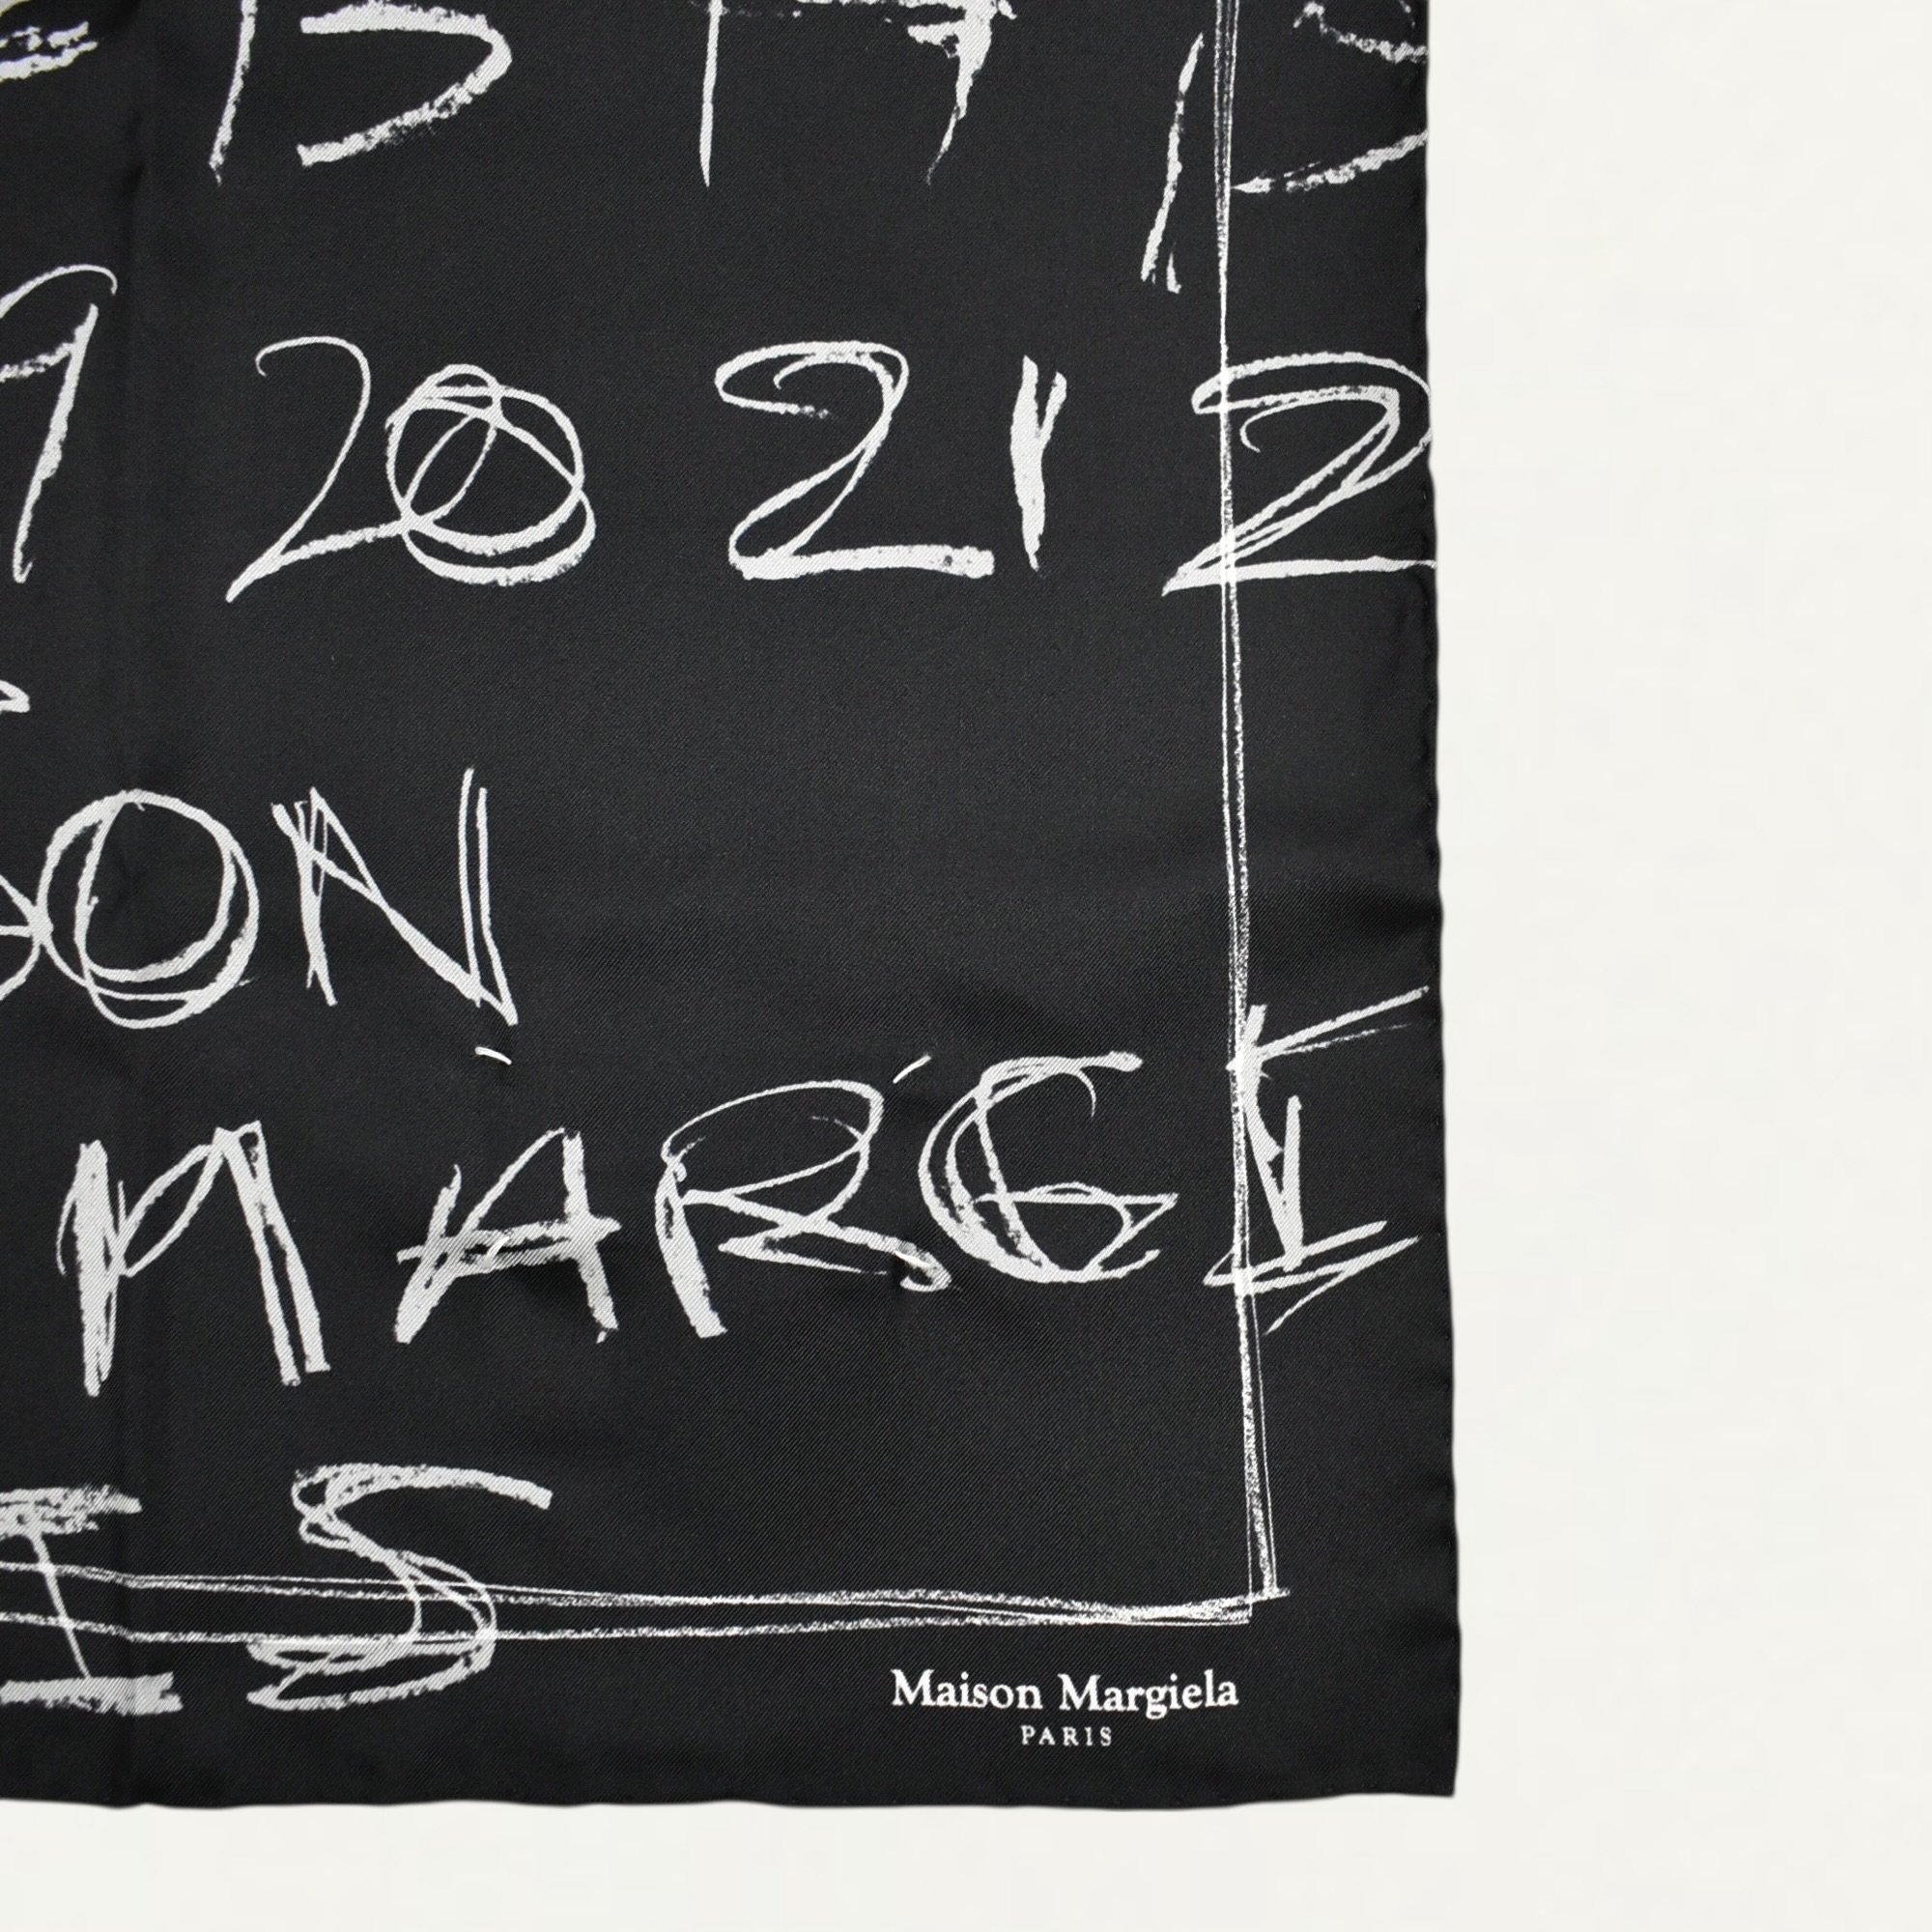 9 20 21 2
ON
MARGI
IS
Maison Margiela
PARIS